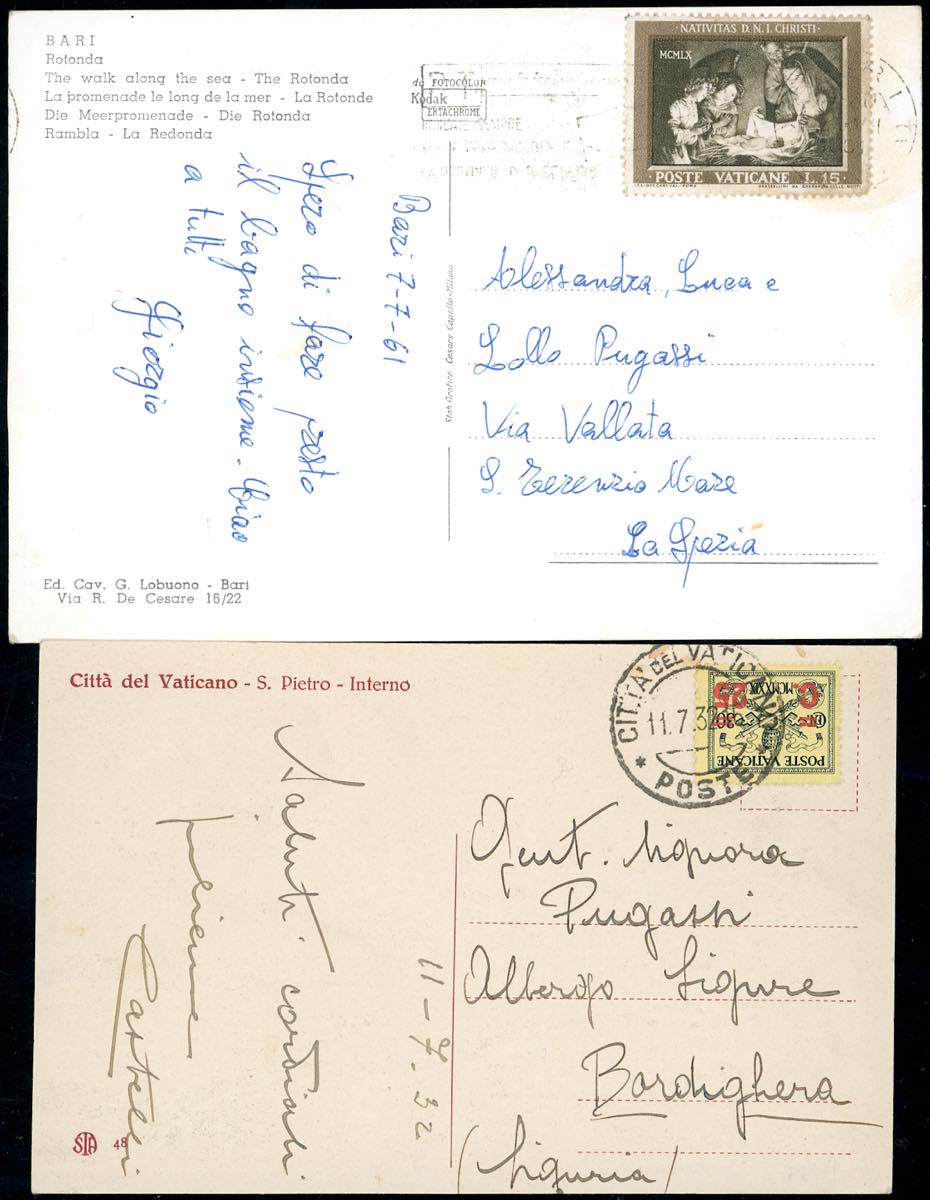 BARI
Rotonda
The walk along the sea - The Rotonda
La promenade le long de la mer - La Rotonde
Die Meerpromenade - Die Rotonda
Rambla - La Redonda
da FOTOCOLOR
Kodak
EKTACHROME
NATIVITAS D. N. I. CHRISTI
MCMLX
POSTE VATICANE L. 15
Bari 7-7-61
Spero di fare presto
il bagno insieme. Ciao
a tutti
Giorgio
Stab. Grafico Cesare Capello - Milano
Alessandra, Luca e
Lollo Pugassi
Via Vallata
S. Terenzio Mare
La Spezia
Ed. Cav. G. Lobuono - Bari
Via R. De Cesare 16/22
Città del Vaticano - S. Pietro - Interno
CITTA' DEL VATICANO
11.7.32
* POSTE *
POSTE VATICANE
MCMXXIX
C. 25
11-7.32
Saluti cordiali
Castelli
Gent. Signora
Pugassi
Albergo Ligure
Bordighera
(Liguria)
STA 48